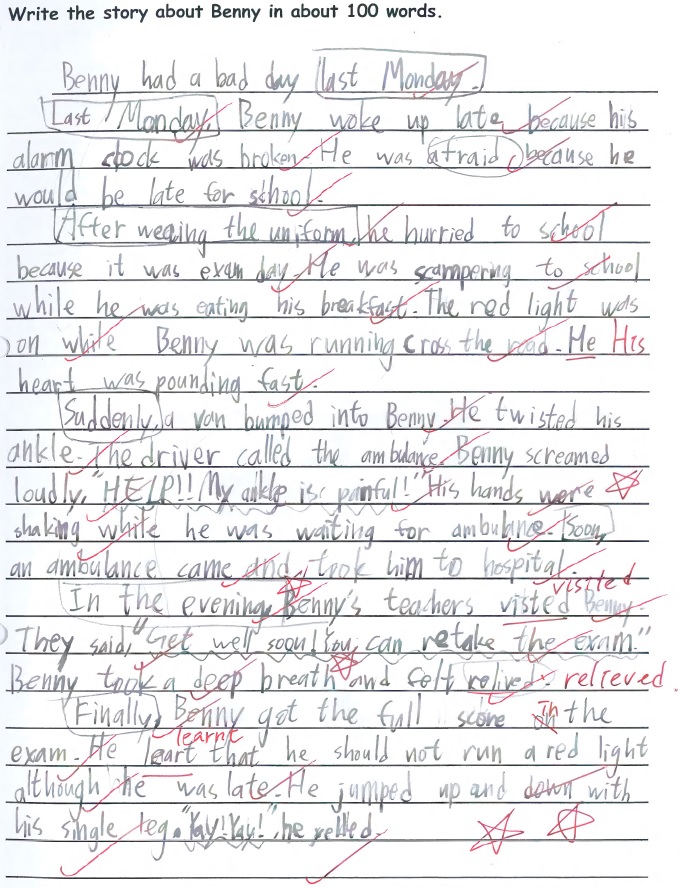 Write the story about Benny in about 100 words.
Benny had a bad day last Monday.
Last Monday, Benny woke up late because his
alarm clock was broken. He was afraid, because he
would be late for school.
After wearing the uniform, he hurried to school
because it was exam day. He was scampering to school
while he was eating his breakfast. The red light was
on while Benny was running cross the road. He His
heart was pounding fast.
Suddenly, a van bumped into Benny. He twisted his
ankle. The driver called the ambulance. Benny screamed
loudly, "HELP!! My ankle is painful!" His hands were
shaking while he was waiting for ambulance. Soon,
an ambulance came and took him to hospital.
visited
In the evening, Benny's teachers visted Benny.
They said, "Get well soon! You can retake the exam."
Benny took a deep breath and felt relived. relieved.
Finally, Benny got the full score in the
learnt
exam. He leart that he should not run a red light
although he was late. He jumped up and down with
his single leg. "Yay! Yay!", he yelled.